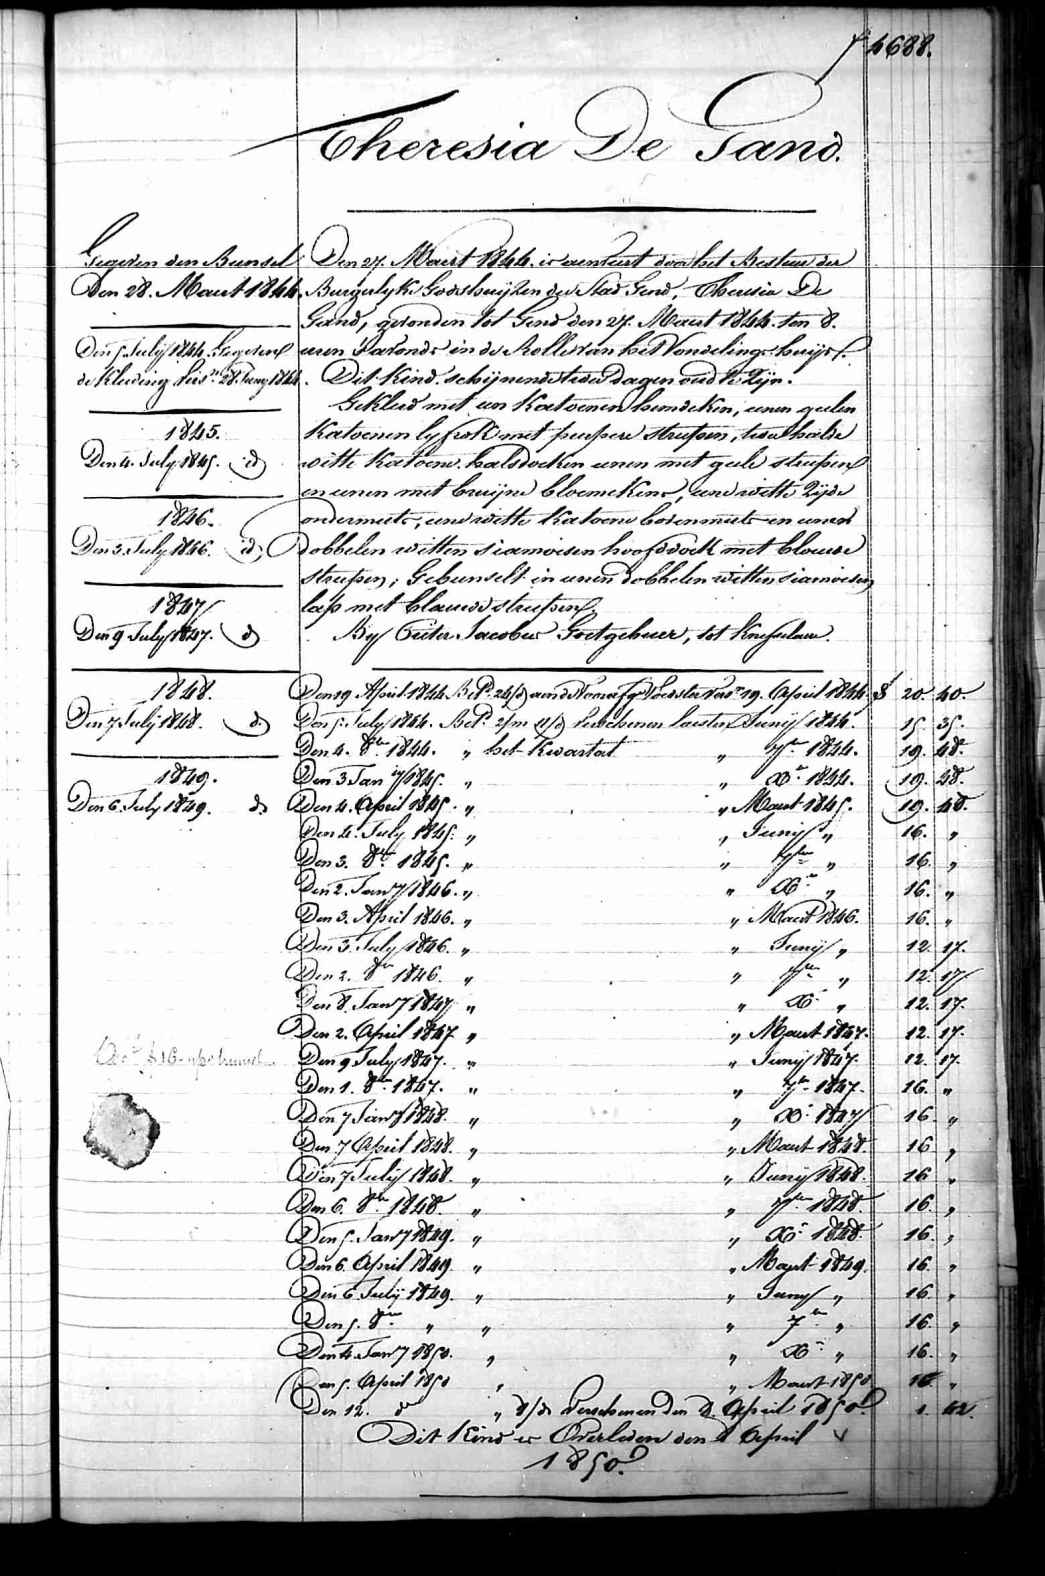 f° 4688.
Theresia De Gand.
Gegeven den Bunsel
Den 28. Maart 1844.
Den 5 July 1844. Gegeven
de Kleeding
1845.
Den 4. July 1845. id
1846.
Den 3. July 1846. id
1847
Den 9 July 1847. d°
1848.
Den 7 July 1848. d°
1849.
Den 6. July 1849. d°
Den 27. Maart 1844. is aenveert door het Bestuer der
Burgerlyke Godshuijzen der Stad Gend, Theresia De
Gand, gevonden tot Gend den 27. Maart 1844. ten 8.
uren s'avonds in de Rolle van het Vondelingshuijs.
Dit Kind schijnende twee dagen oud te Zijn.
Gekleed met een Katoenen hemdeken, eenen geelen
Katoenen lyfrok met purpere streepen, twee halve
witte Katoene halsdoeken eenen met geele streepen
en eenen met bruijne bloemekens, eene witte Zijde
ondermuts, eene witte Katoene bovenmuts en eenen
dobbelen witten siamoisen hoofddoek met blauwe
streepen, Gebunselt in eenen dobbelen witten siamoisen
lap met blauwe streepen.
By Pieter Jacobus Goetgebuer, tot Knesselare.
Den 19 April 1844. Bet. 24/d aen de Voorafg. Voedster 19. April 1844. f 20. 40.
Den 5. July 1844. Bet. 2/m 11/d Verschenen laesten Junij 1844. 15. 35.
Den 4. 8er 1844. " het Kwartal " 7er 1844. 19. 48.
Den 3 Jany 1845. " " Xr 1844. 19. 48.
Den 4. April 1845. " " Maart 1845. 19. 48.
Den 4. July 1845. " " Junij " 16. "
Den 3. 8er 1845. " " 7er " 16. "
Den 2. Jany 1846. " " Xr " 16. "
Den 3. April 1846. " " Maart 1846. 16. "
Den 3. July 1846. " " Junij " 12. 17.
Den 2. 8er 1846. " " 7er " 12. 17
Den 8. Jany 1847 " " Xr " 12. 17.
Den 2. April 1847 " " Maart 1847. 12. 17.
Den 9 July 1847. " " Junij 1847. 12. 17.
Den 1. 8er 1847. " " 7er 1847. 16. "
Den 7 Jany 1848. " " Xr 1847 16. "
Den 7 April 1848. " " Maart 1848. 16 "
Den 7 July 1848. " " Junij 1848. 16 "
Den 6. 8er 1848. " " 7er 1848. 16. "
Den 5. Jany 1849. " " Xr 1848. 16. "
Den 6. April 1849. " " Maart 1849. 16. "
Den 6 July 1849. " " Juny " 16. "
Den 5. 8er " " " 7er " 16. "
Den 4. Jany 1850. " " Xr " 16. "
Den 5. April 1850 " " Maart 1850 16 "
Den 12. d° " 8/d Verschenen den 8. April 1850. 1. 42.
Dit Kind is Overleden den 8 April
1850.